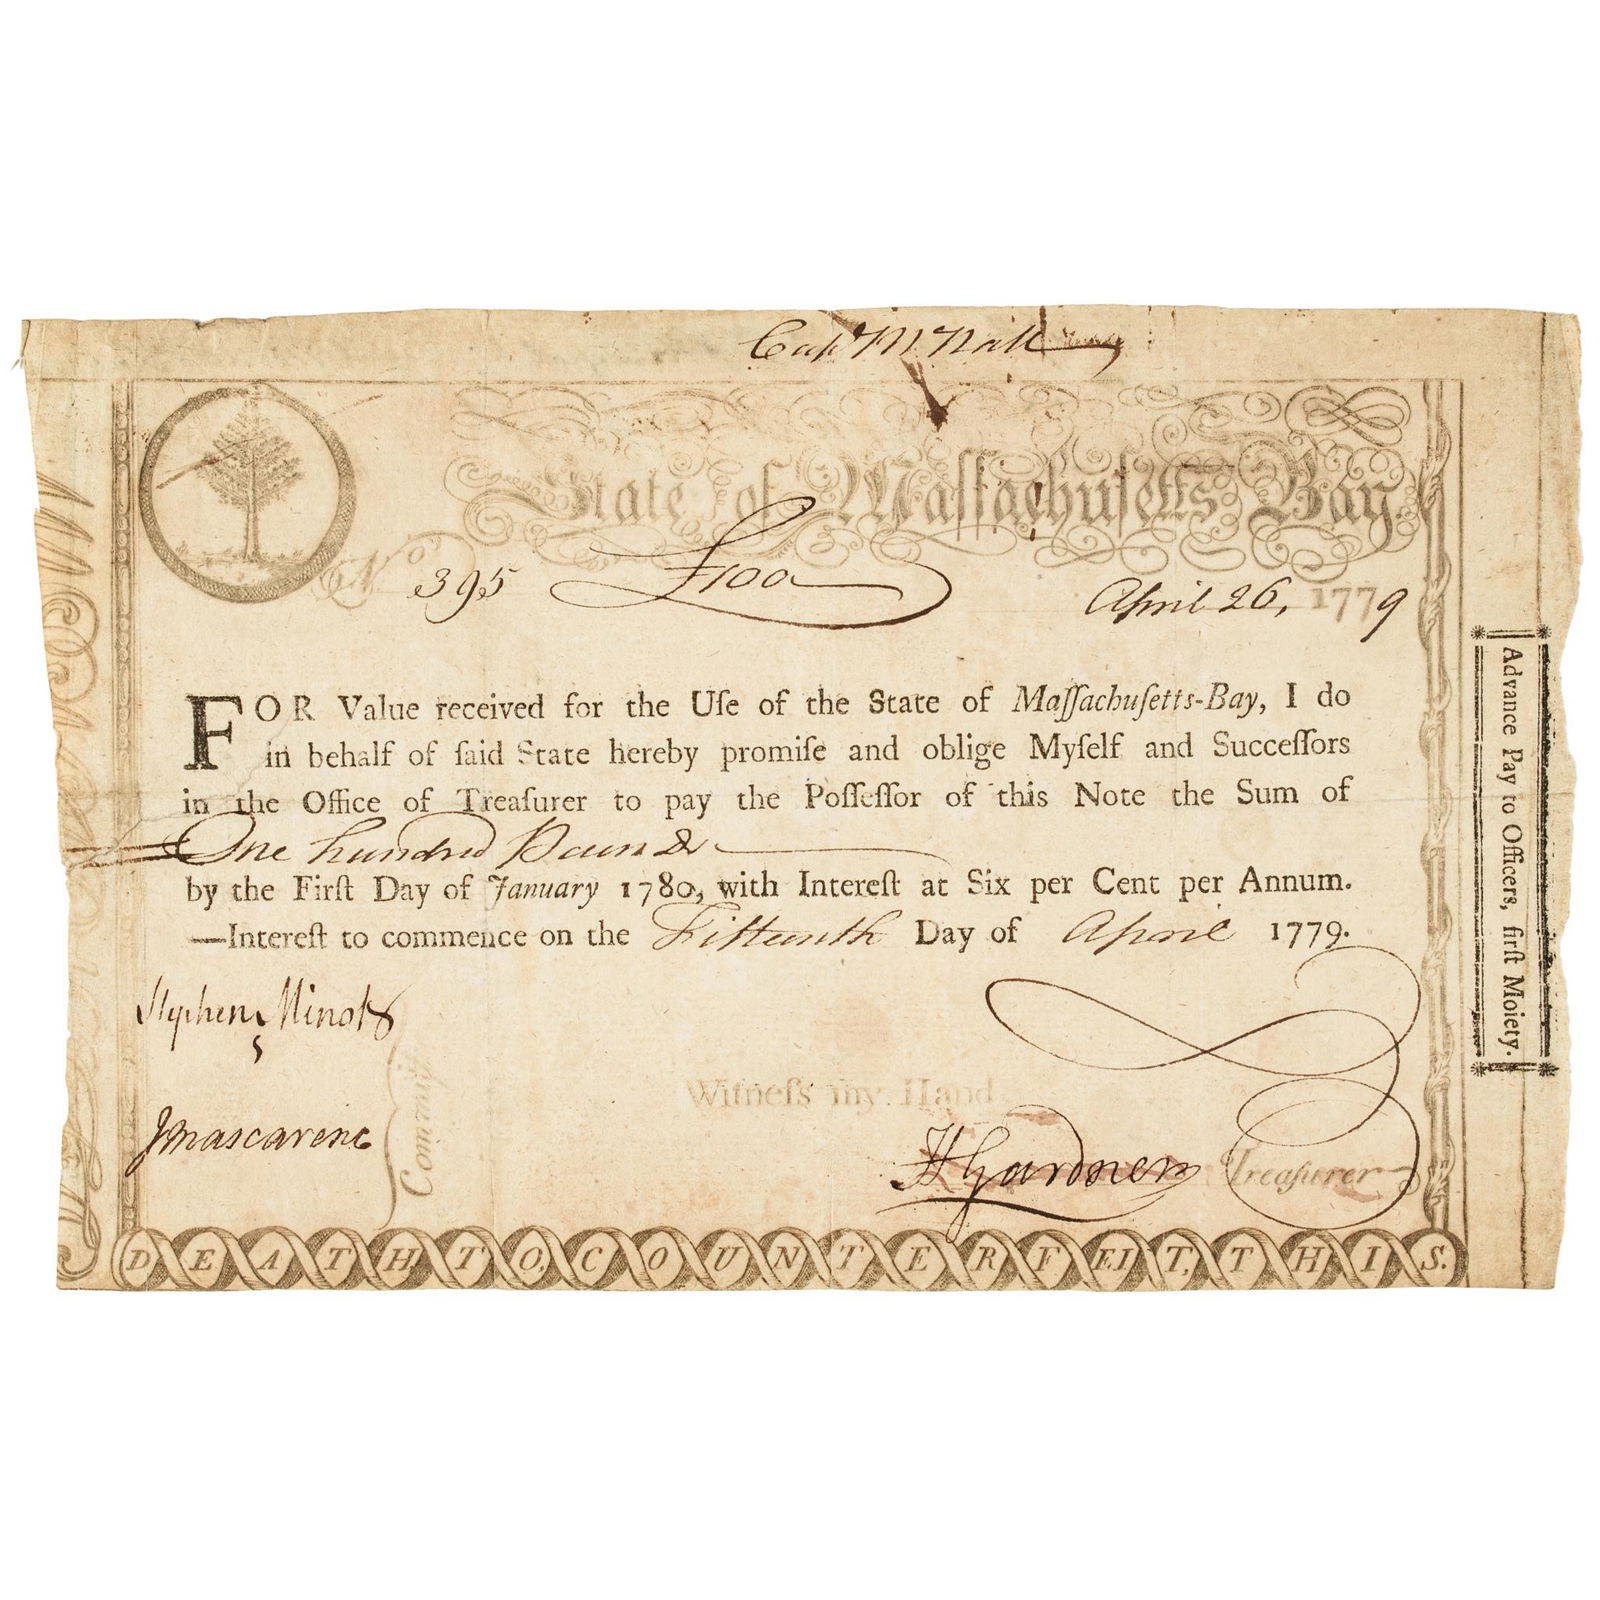 State of Maſſachuſetts Bay.
No. 395 £100 April 26, 1779
FOR Value received for the Uſe of the State of Maſſachuſetts-Bay, I do
in behalf of ſaid State hereby promiſe and oblige Myſelf and Succeſſors
in the Office of Treaſurer to pay the Poſſeſſor of this Note the Sum of
One hundred Pounds
by the Firſt Day of January 1780, with Intereſt at Six per Cent per Annum.
—Intereſt to commence on the Fifteenth Day of April 1779.
Stephen Minot
Witneſs my Hand
J Mascarene
HGardner Treaſurer
DEATH TO, COUNTERFEIT, THIS.
Advance Pay to Officers, firſt Moiety.